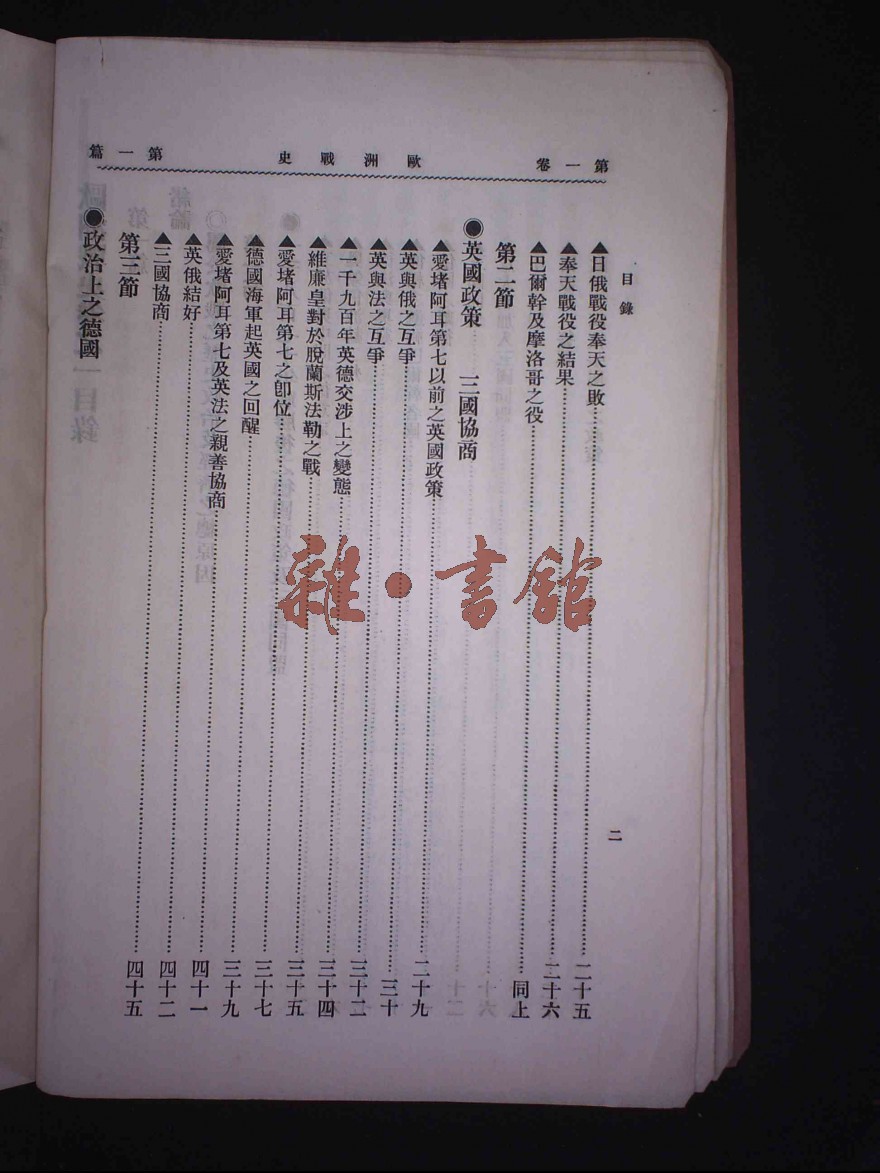 第一卷 歐洲戰史 第一篇
目錄 二
▲日俄戰役奉天之敗……二十五
▲奉天戰役之結果……二十六
▲巴爾幹及摩洛哥之役……同上
第二節
●英國政策 三國協商
▲愛堵阿耳第七以前之英國政策……二十九
▲英與俄之互爭……三十
▲英與法之互爭……三十
▲一千九百年英德交涉上之變態……三十二
▲維廉皇對於脫蘭斯法勒之戰……三十四
▲愛堵阿耳第七之卽位……三十五
▲德國海軍起英國之回醒……三十七
▲愛堵阿耳第七及英法之親善協商……三十九
▲英俄結好……四十一
▲三國協商……四十二
第三節……四十五
●政治上之德國
雜·書館